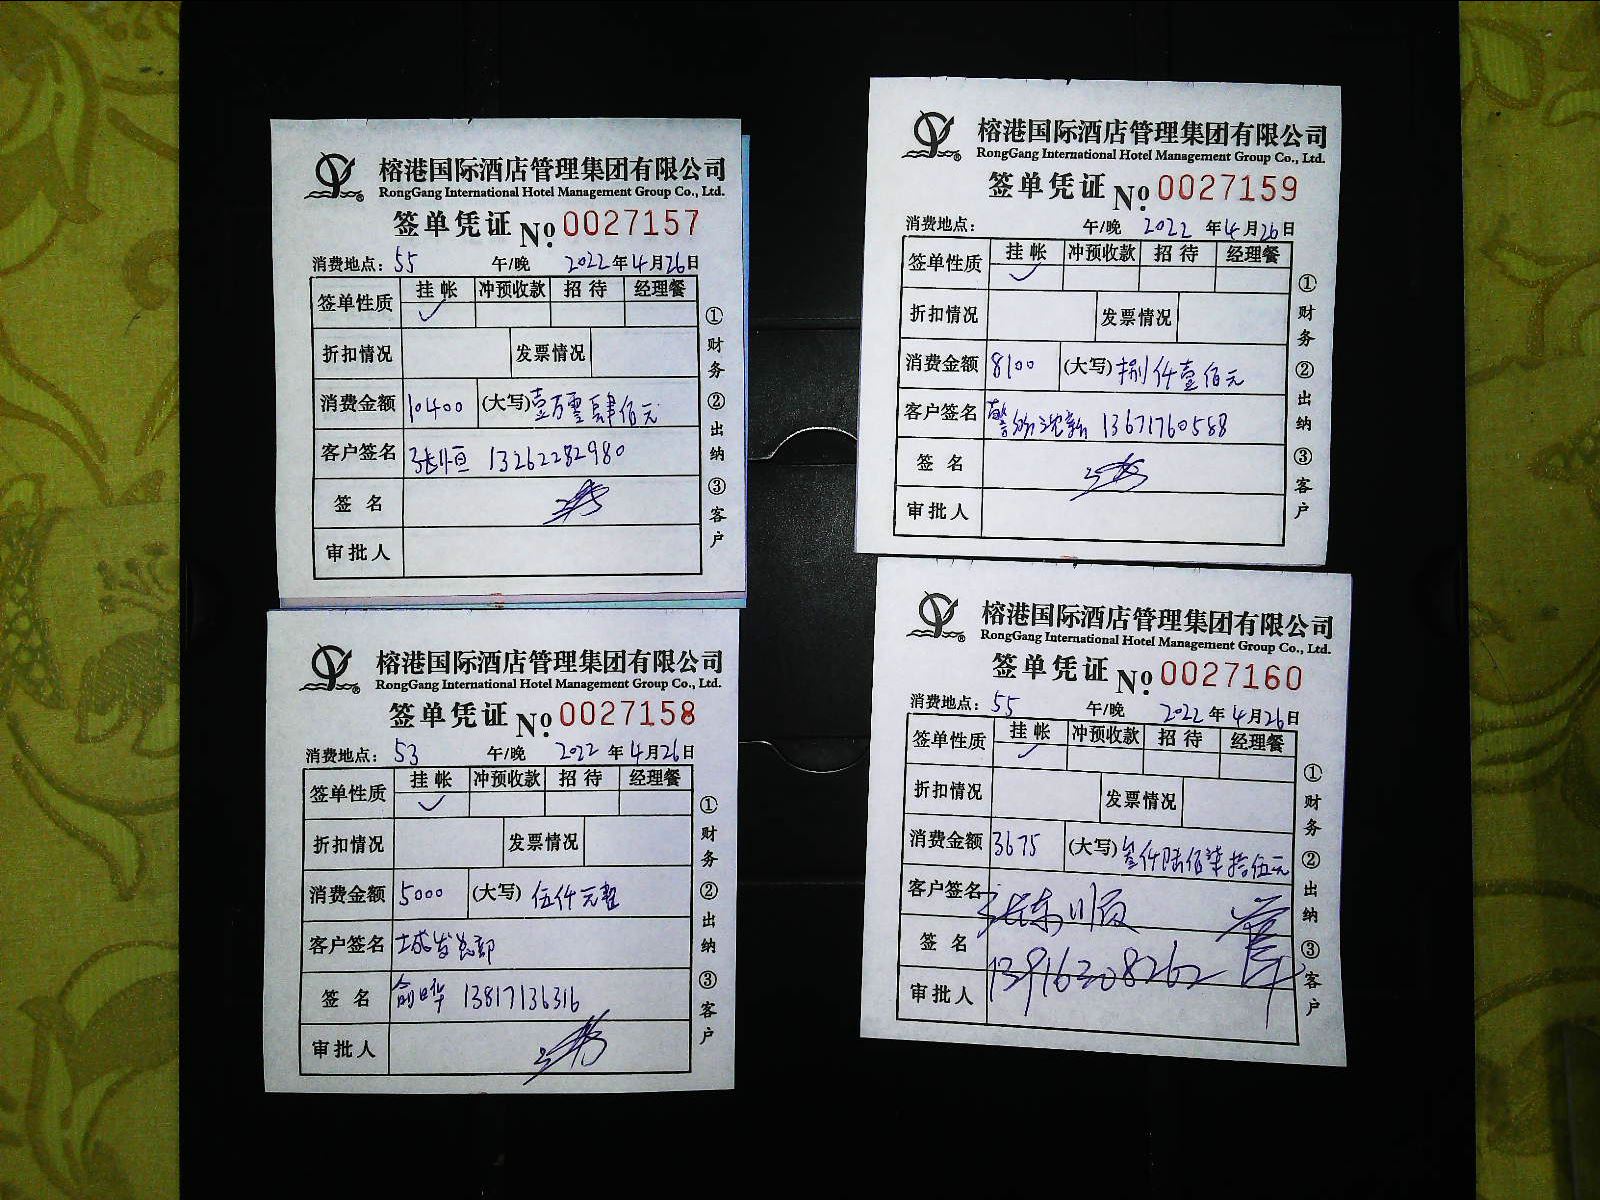 榕港国际酒店管理集团有限公司
RongGang International Hotel Management Group Co., Ltd.
签单凭证 No. 0027157
消费地点: 55 午/晚 2022年4月26日
签单性质 挂帐 冲预收款 招待 经理餐
✓
折扣情况 发票情况
消费金额 10400 (大写) 壹万零肆佰元
客户签名 张恒 13262282980
签名
审批人
①财务 ②出纳 ③客户
榕港国际酒店管理集团有限公司
RongGang International Hotel Management Group Co., Ltd.
签单凭证 No. 0027158
消费地点: 53 午/晚 2022年4月26日
签单性质 挂帐 冲预收款 招待 经理餐
✓
折扣情况 发票情况
消费金额 5000 (大写) 伍仟元整
客户签名 城发总部
签名 俞晔 13817136316
审批人
①财务 ②出纳 ③客户
榕港国际酒店管理集团有限公司
RongGang International Hotel Management Group Co., Ltd.
签单凭证 No. 0027159
消费地点: 午/晚 2022年4月26日
签单性质 挂帐 冲预收款 招待 经理餐
✓
折扣情况 发票情况
消费金额 8100 (大写) 捌仟壹佰元
客户签名 13671760588
签名
审批人
①财务 ②出纳 ③客户
榕港国际酒店管理集团有限公司
RongGang International Hotel Management Group Co., Ltd.
签单凭证 No. 0027160
消费地点: 55 午/晚 2022年4月26日
签单性质 挂帐 冲预收款 招待 经理餐
✓
折扣情况 发票情况
消费金额 3675 (大写) 叁仟陆佰柒拾伍元
客户签名 张东顺
签名 13916308262
审批人
①财务 ②出纳 ③客户